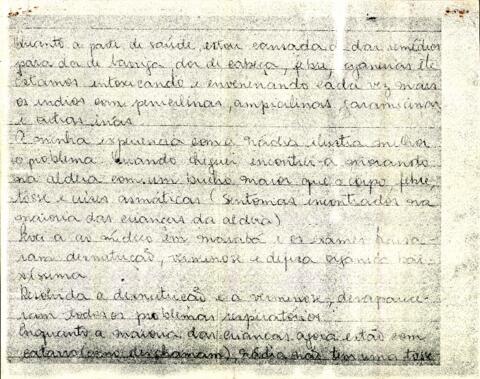 Quanto a parte de saúde, estou cansada de dar remédios
para dor de barriga dor de cabeça, febre, etc
Estamos intoxicando e envenenando cada vez mais
os indios com penicilinas, ampicilinas, garamicinas
e outras inas.
A minha experiencia com a Nádia ilustra melhor
o problema. Quando cheguei encontrei-a morando
na aldeia com um bucho maior que o corpo febre,
tosse e crises asmáticas (Sintomas encontrados na
maioria das crianças da aldeia)
Levei-a ao médico em Marabá e os exames
desnutrição, verminose e defesa orgânica bai-
xíssima
Resolvida a desnutrição e a verminose, desaparece-
ram todos os problemas respiratorios.
Enquanto a maioria das crianças agora estão com
catarro (como eles chamam), Nádia não tem uma tosse